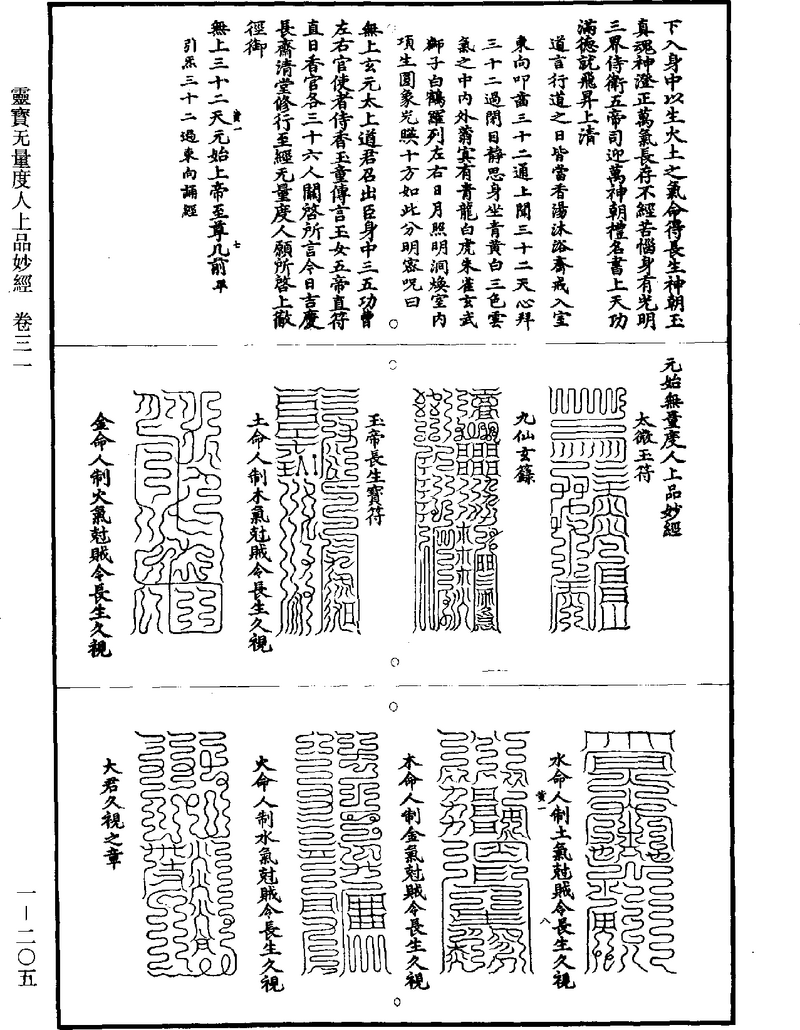 下入身中以生火土之氣命得長生神朝玉
真魂神澄正萬氣長存不經苦惱身有光明
三界侍衛五帝司迎萬神朝禮名書上天功
滿德就飛昇上清
道言行道之日皆當香湯沐浴齋戒入室
東向叩齒三十二通上聞三十二天心拜
三十二過閉目靜思身坐青黃白三色雲
氣之中內外蓊冥有青龍白虎朱雀玄武
獅子白鶴羅列左右日月照明洞煥室內
項生圓象光暎十方如此分明密呪曰
無上玄元太上道君召出臣身中三五功曹
左右官使者侍香玉童傳言玉女五帝直符
直日香官各三十六人關啓所言今日吉慶
長齋清堂修行至經无量度人願所啓上徹
徑御
無上三十二天元始上帝至尊几前
黃一
七
引炁三十二過東向誦經
元始無量度人上品妙經
太微玉符
九仙玄籙
玉帝長生寶符
土命人制木氣尅賊令長生久視
金命人制火氣尅賊令長生久視
水命人制土氣尅賊令長生久視
黃一
八
木命人制金氣尅賊令長生久視
火命人制水氣尅賊令長生久視
大君久視之章
靈寶无量度人上品妙經 卷三一
一—二〇五